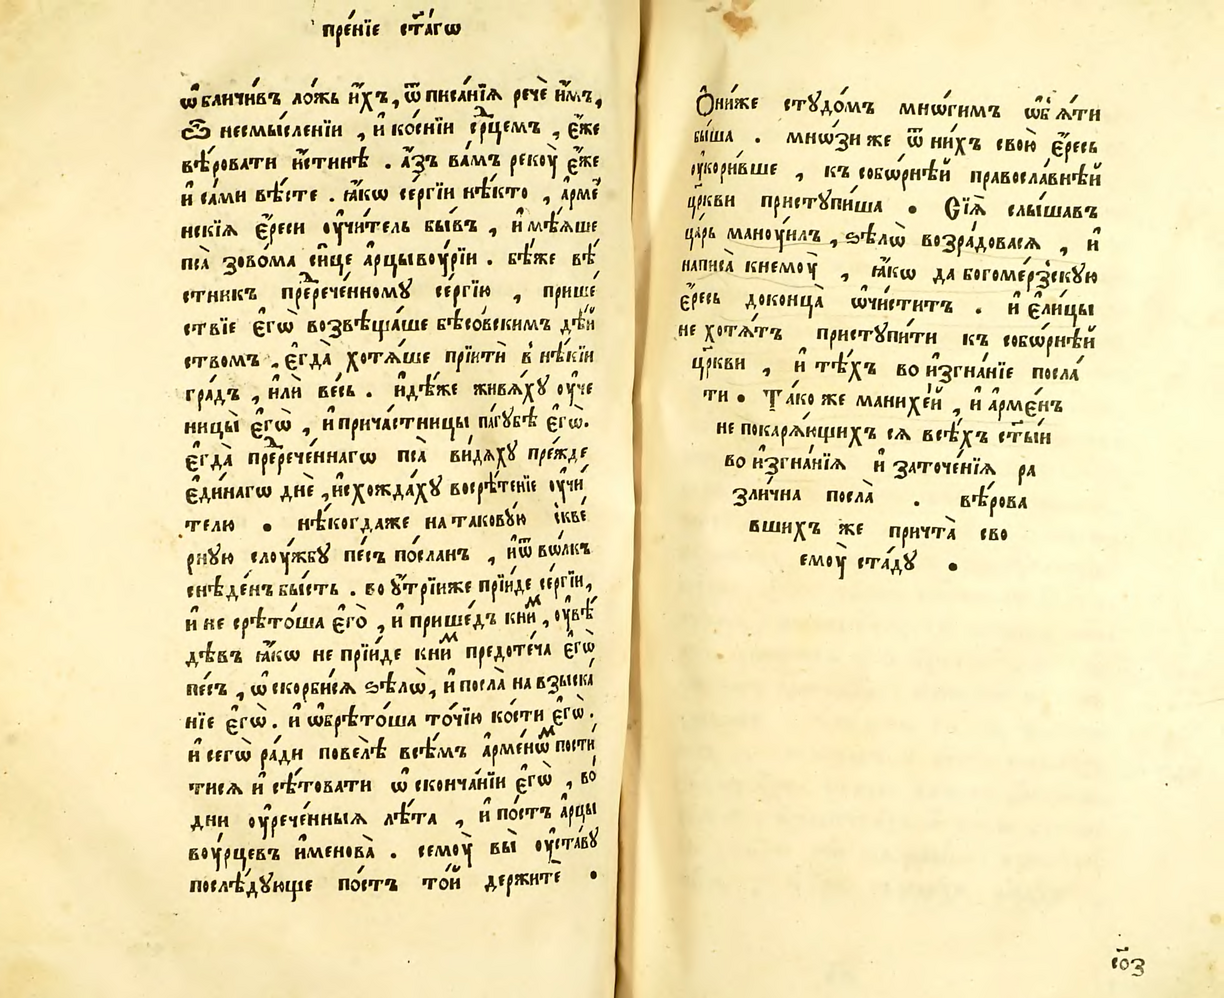 пре́нїе ст҃а́гѡ
ѡ҆бличи́въ ло́жь и҆́хъ, ѿ писа́нїѧ речѐ и҆̀мъ,
Ѽ несмы́сленїи , и҆ ко́снїи ср҃дцемъ , є҆́же
вѣ́ровати и҆́стинѣ . а҆́зъ ва́мъ рекоу̀ є҆́же
и҆ са́ми вѣ́сте . ꙗ҆́кѡ се́ргїи нѣ́кто , а҆рме́
нскїѧ є҆́реси оу҆чи́тель бы́въ , и҆ мѣ́ѧше
пса̀ зовома си́це а҆рцывоу́рїи . бѣ́же вѣ́
стникъ пре́дрече́нному се́ргїю , прише́
ствїе є҆гѡ̀ возвѣща́ше бѣсо́вскимъ дѣ́й
ствомъ . є҆гда̀ хотѧ́ше прїитѝ в нѣ́кїи
гра́дъ , и҆лѝ ве́сь . и҆дѣ́же живѧ́хꙋ оу҆че
ницы̀ є҆гѡ̀ , и҆ прича́стницы па́гꙋбѣ є҆гѡ̀.
є҆гда̀ пре́дрече́ннагѡ пса̀ ви́дѧхꙋ пре́жде
є҆ди́нагѡ днѐ , и҆схожда́хꙋ восрѣ́тенїе оу҆чи́
телю . нѣ́когдаже на такову́ю скве́
рнꙋю слоу́жбꙋ пе́съ по́сланъ , и҆ ѿ во́лкъ
снѣде́нъ бы́сть . во ᲂу҆́трїиже прїи́де се́ргїи,
и҆ не срѣто́ша є҆го̀ , и҆ прише́дъ кни́м , оу҆вѣ́
дѣвъ ꙗ҆́кѡ не прїи́де кни́м предоте́ча є҆гѡ̀
пе́съ , ѡ҆скорби́сѧ ѕѣлѡ̀, и҆ посла̀ на взыска́
нїе є҆гѡ̀ . и҆ ѡ҆брѣто́ша то́чїю ко́сти є҆гѡ̀ .
и҆ сегѡ̀ ра́ди повелѣ̀ всѣ́мъ а҆рме́нѡм пости́
тисѧ и҆ сѣ́товати ѡ҆ сконча́нїи є҆гѡ̀ , во
дни оу҆рече́нныѧ лѣ́та , и҆ по́стъ а҆рцы
воу́рцевъ и҆менова̀ . семоу̀ вы̀ оу҆ста́вꙋ
послѣ́дꙋюще по́стъ то́й держитѐ .
Ѻ҆ни́же стꙋдо́мъ мнѡ́гимъ ѡ҆б̾ѧ́ти
бы́ша . мнѡ́зи же ѿ ни́хъ свою̀ є҆́ресь
оу҆кори́вше , къ собѡ́рнѣй правосла́внѣй
цр҃кви пристꙋпи́ша . Сїѧ̀ слы́шавъ
ца́рь маноуи́лъ , ѕѣлѡ̀ возра́довасѧ , и҆
написа̀ кнемоу̀ , ꙗ҆́кѡ да богоме́рзскꙋю
є҆́ресь доконца̀ ѡ҆чи́ститъ . и҆ є҆ли́цы
не хотѧ́тъ пристꙋпи́ти къ собѡ́рнѣй
цр҃кви , и҆ тѣ́хъ во и҆згна́нїе посла́
ти . Та́ко же манихе́й , и҆ а҆рме́нъ
не покарѧ́ющихъ сѧ всѣ́хъ ст҃ы́й
во и҆згна́нїѧ и҆ заточе́нїѧ ра
зли́чна посла̀ . вѣ́рова
вшихъ же причта̀ сво
емоу̀ ста́дꙋ .
со҃з